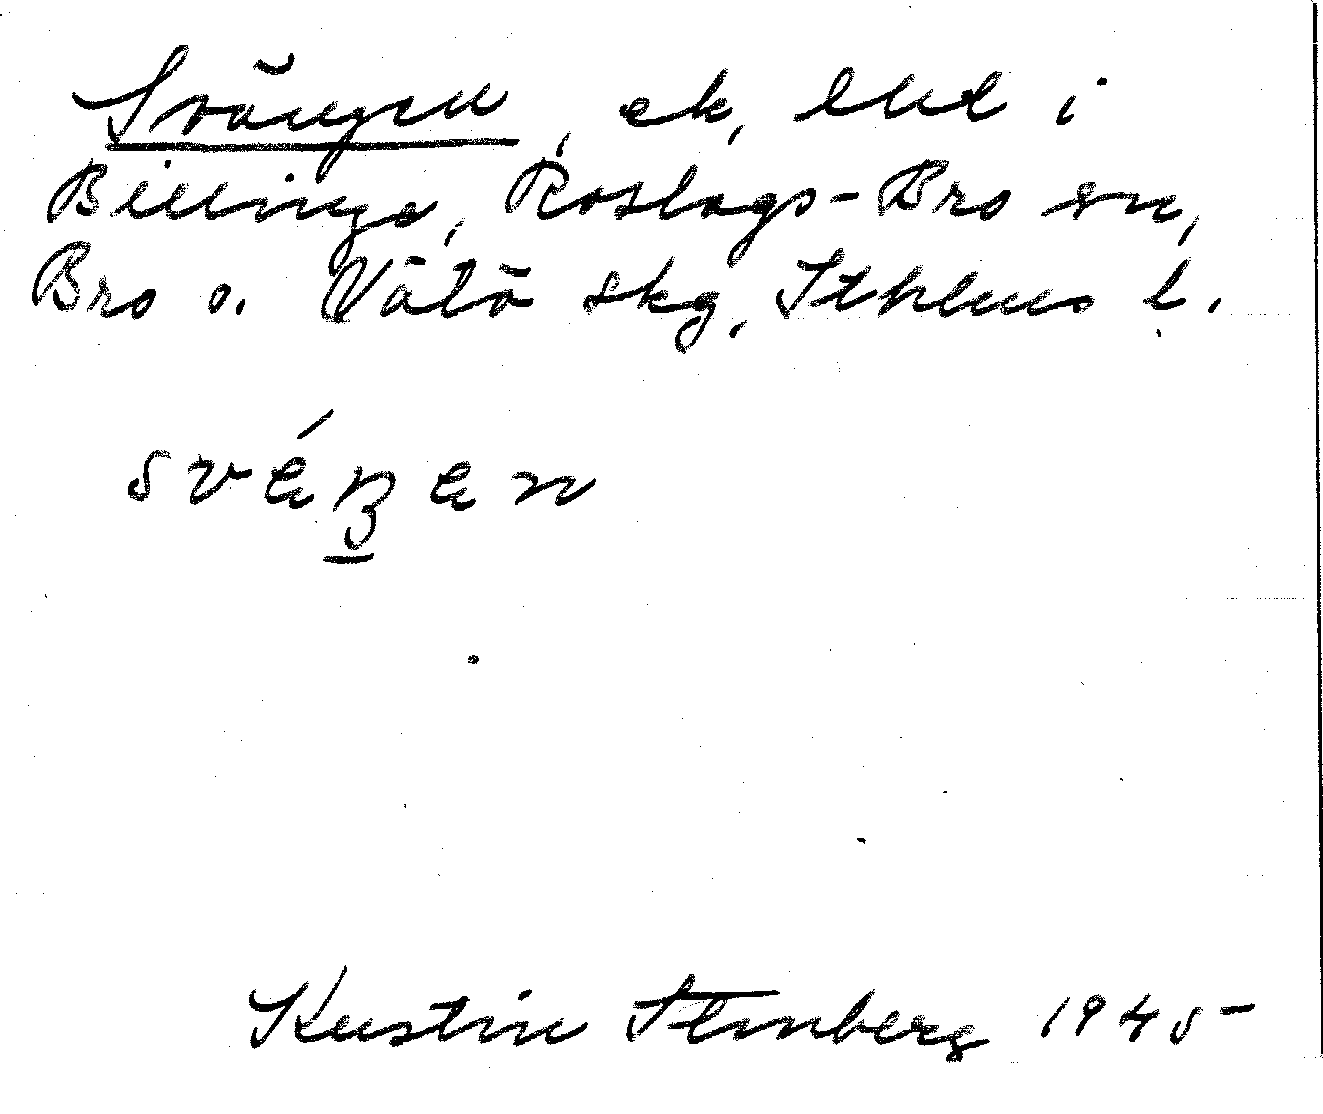 Svängen, ek, lht i
Billinge, Roslags-Bro sn,
Bro o. Vätö skg, Sthlms l.
Kerstin Stenberg 1945